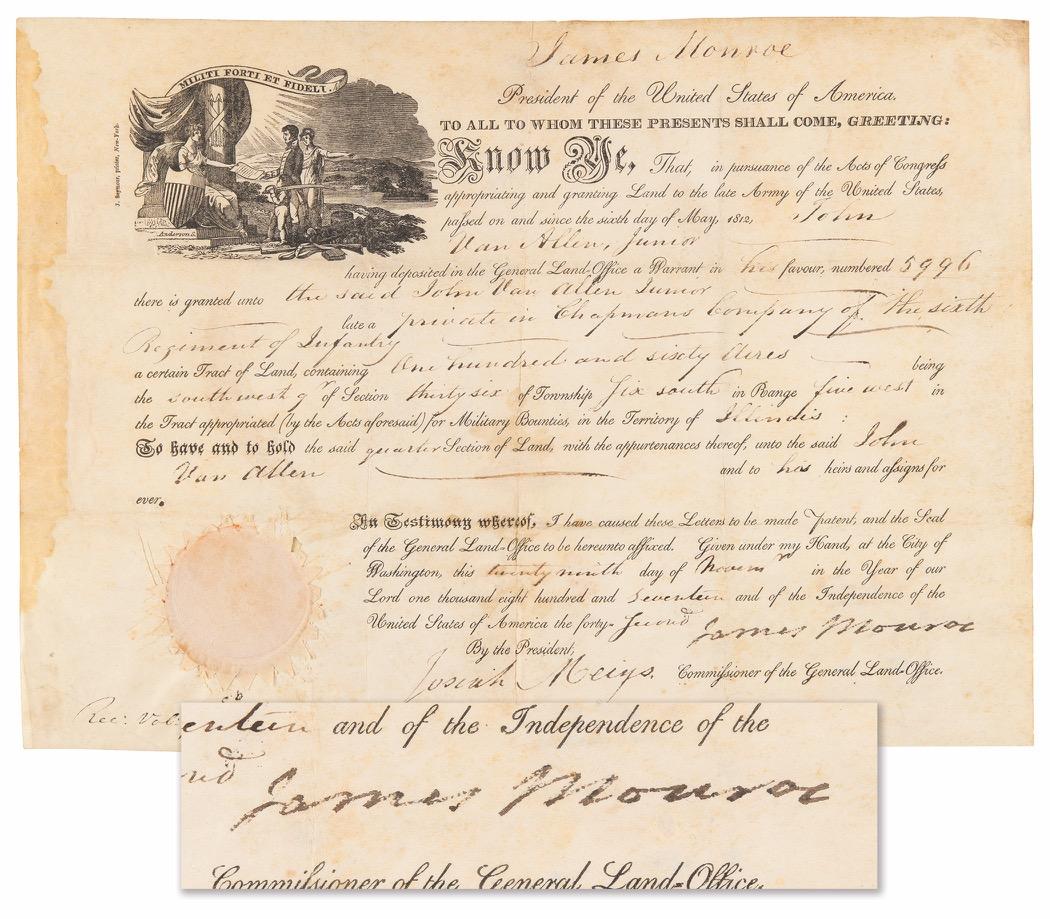 James Monroe
MILITI FORTI ET FIDELI.
President of the United States of America.
TO ALL TO WHOM THESE PRESENTS SHALL COME, GREETING:
Know Ye, That, in pursuance of the Acts of Congress
appropriating and granting Land to the late Army of the United States,
passed on and since the sixth day of May, 1812, John
Van Allen, Junior
having deposited in the General Land-Office a Warrant in his favour, numbered 5996
there is granted unto the said John Van Allen Junior
late a private in Chapmans Company of the sixth
Regiment of Infantry
a certain Tract of Land, containing One hundred and sixty Acres being
the southwest qr of Section thirty six of Township Six south in Range five west in
the Tract appropriated (by the Acts aforesaid) for Military Bounties, in the Territory of Illinois :
To have and to hold the said quarter Section of Land, with the appurtenances thereof, unto the said John
Van Allen and to his heirs and assigns for
ever.
In Testimony whereof, I have caused these Letters to be made Patent, and the Seal
of the General Land-Office to be hereunto affixed. Given under my Hand, at the City of
Washington, this twenty ninth day of in the Year of our
Lord one thousand eight hundred and Seventeen and of the Independence of the
United States of America the forty-Second James Monroe
By the President,
Josiah Meigs. Commissioner of the General Land-Office.
J. Seymour, printer, New-York.
Anderson S.
Rec: Vol
enteen and of the Independence of the
nd
James Monroe
Commissioner of the General Land-Office.